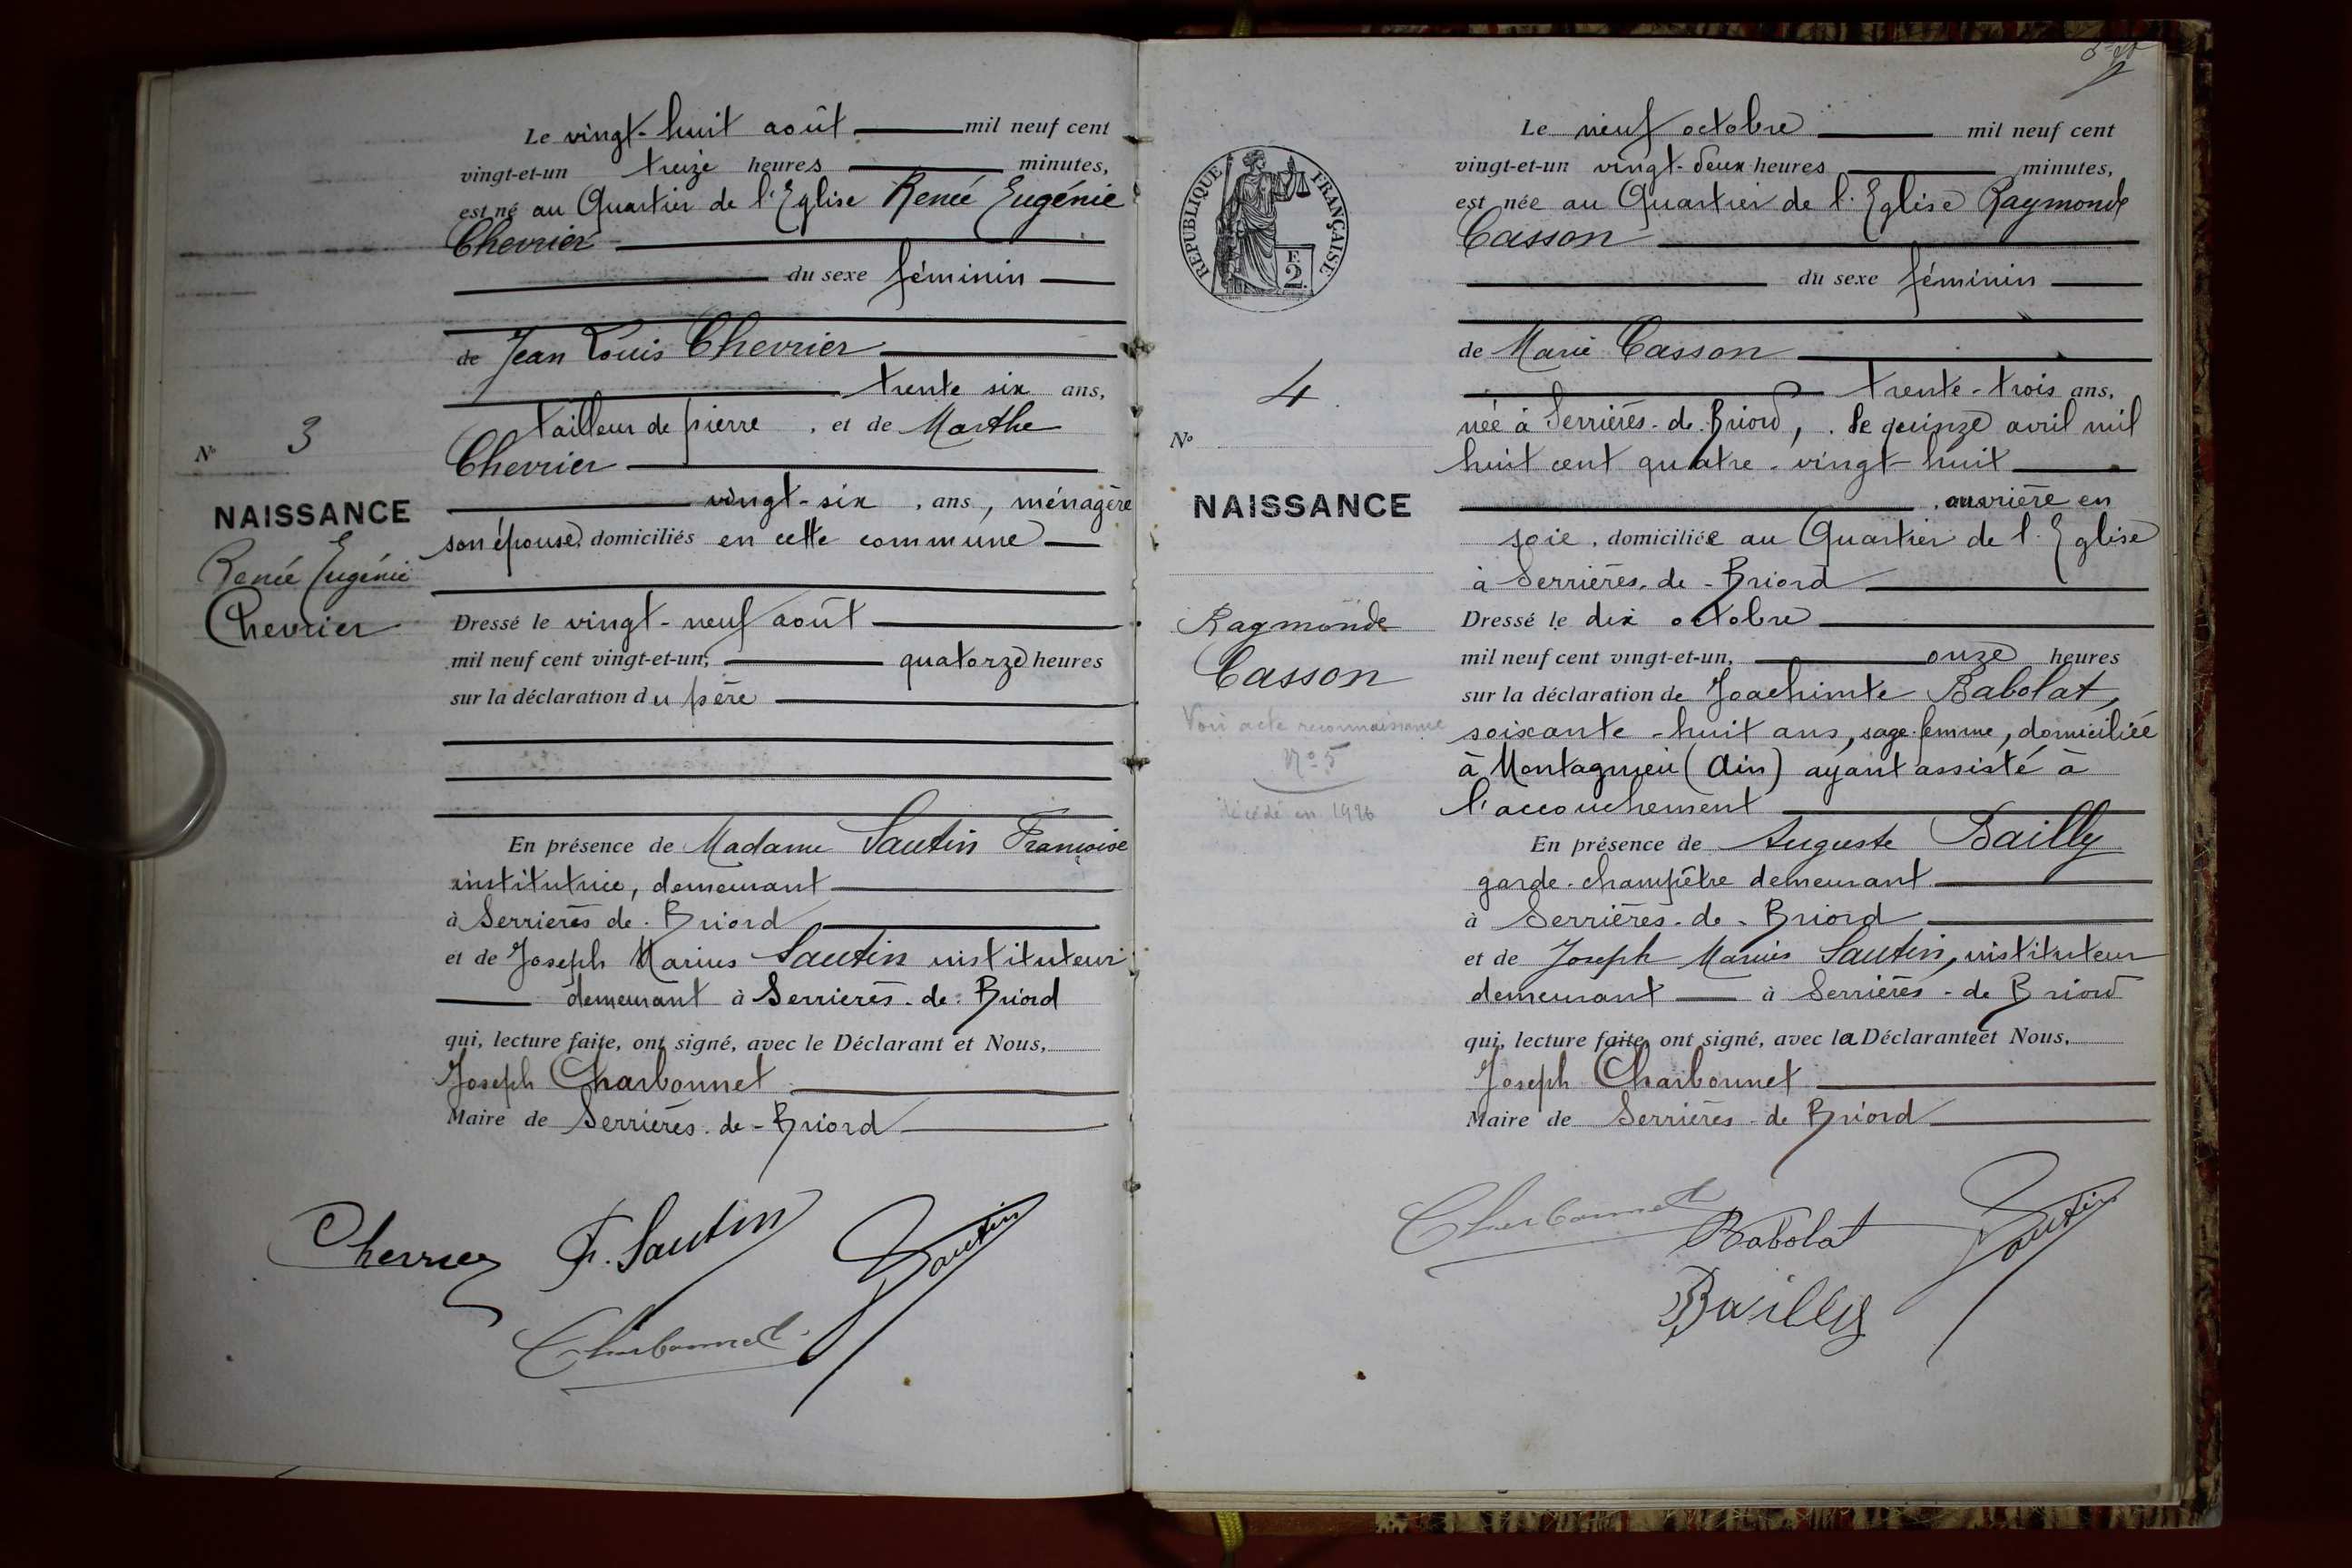 Le vingt-huit août mil neuf cent
vingt-et-un treize heures minutes,
est né au Quartier de l'Eglise Renée Eugénie
Chevrier
du sexe féminin
de Jean Louis Chevrier
trente six ans,
tailleur de pierre, et de Marthe
Chevrier
vingt-six, ans, ménagère
son épouse, domiciliés en cette commune
Dressé le vingt-neuf août
mil neuf cent vingt-et-un, quatorze heures
sur la déclaration du père
En présence de Madame Sautin Françoise
institutrice, demeurant
à Serrières de Briord
et de Joseph Marius Sautin instituteur
demeurant à Serrières-de-Briord
qui, lecture faite, ont signé, avec le Déclarant et Nous,
Joseph Charbonnet
Maire de Serrières-de-Briord
N° 3
NAISSANCE
Renée Eugénie
Chevrier
Chevrier F. Sautin Sautin
Charbonnet
RÉPUBLIQUE FRANÇAISE
F.
2.
4
N°
NAISSANCE
Raymonde
Casson
Voir acte reconnaissance
N° 5
décédé en 1926
Le neuf octobre mil neuf cent
vingt-et-un vingt-deux heures minutes,
est née au Quartier de l'Eglise Raymonde
Casson
du sexe féminin
de Marie Casson
trente-trois ans,
née à Serrières-de-Briord, le quinze avril mil
huit cent quatre-vingt-huit
, ouvrière en
soie, domiciliée au Quartier de l'Eglise
à Serrières-de-Briord
Dressé le dix octobre
mil neuf cent vingt-et-un, onze heures
sur la déclaration de Joachimte Babolat,
soixante-huit ans, sage-femme, domiciliée
à Montagnieu (Ain) ayant assisté à
l'accouchement
En présence de Auguste Bailly
garde-champêtre demeurant
à Serrières-de-Briord
et de Joseph Marius Sautin, instituteur
demeurant à Serrières-de Briord
qui, lecture faite, ont signé, avec la Déclarante et Nous,
Joseph Charbonnet
Maire de Serrières-de Briord
Charbonnet Babolat Sautin
Bailly